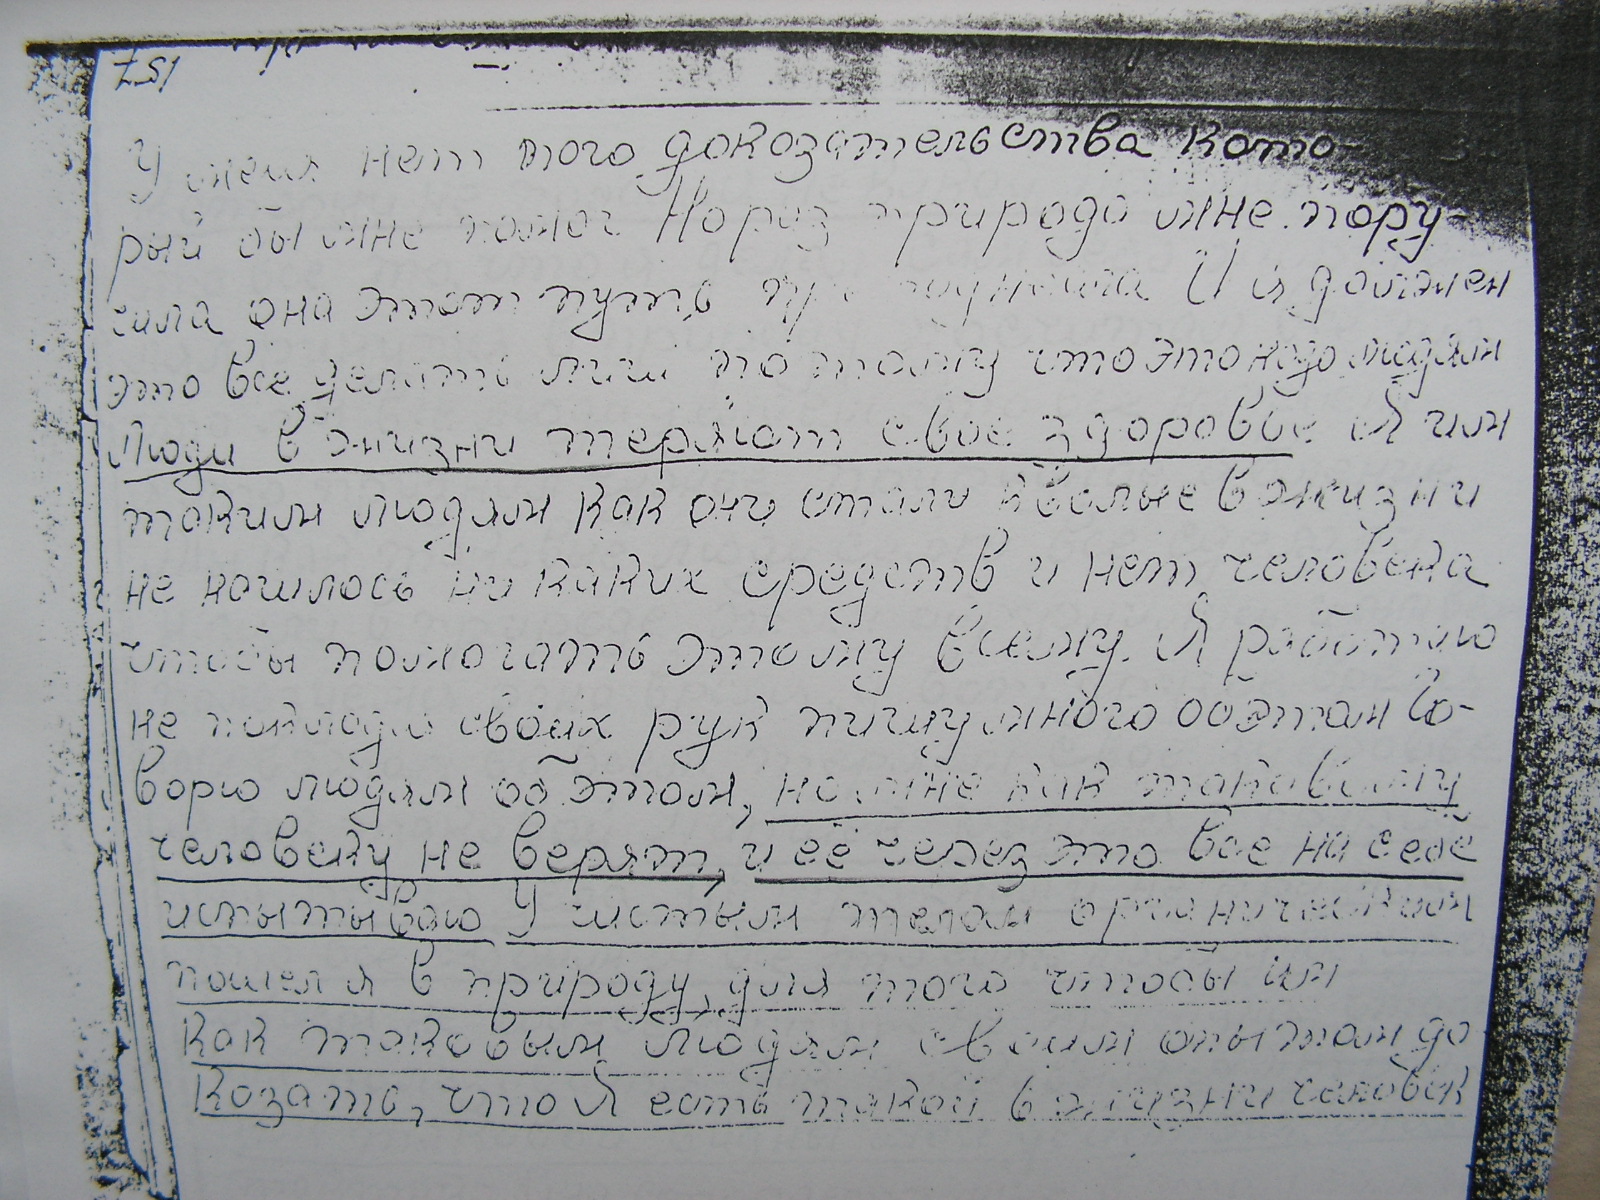 157
У меня нет того доказательства кото-
рый бы мне помог Нораз природа мне пору-
чила она этот путь И я должен
это все делать потому что это надо людям
Люди в жизни теряют свое здоровье Я им
таким людям как они стали в жизни
не нашлось ни каких средств и нет человека
чтобы помогать этому всему. Я работаю
не покладя своих рук пишу много об этом Го-
ворю людям об этом, но мне как таковому
человеку не верят, и её через это все на себе
испытываю У чистым телом органическим
пошел я в природу для того чтобы им
как таковым людям своим опытом до
козать, что Я есть такой в жизни человек